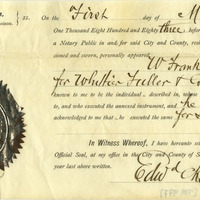 ss. On the First day of M
One Thousand Eight Hundred and Eighty three, before
a Notary Public in and, for said City and County, resid
sioned and sworn, personally appeared
W Frank
for Whittier Fuller & Co
known to me to be the individual described in, whose
to, and who executed the annexed instrument, and he
acknowledged to me that he executed the same
for
In Witness Whereof, I have hereunto set
Official Seal, at my office in the City and County of S
year last above written.
Edwd Ch